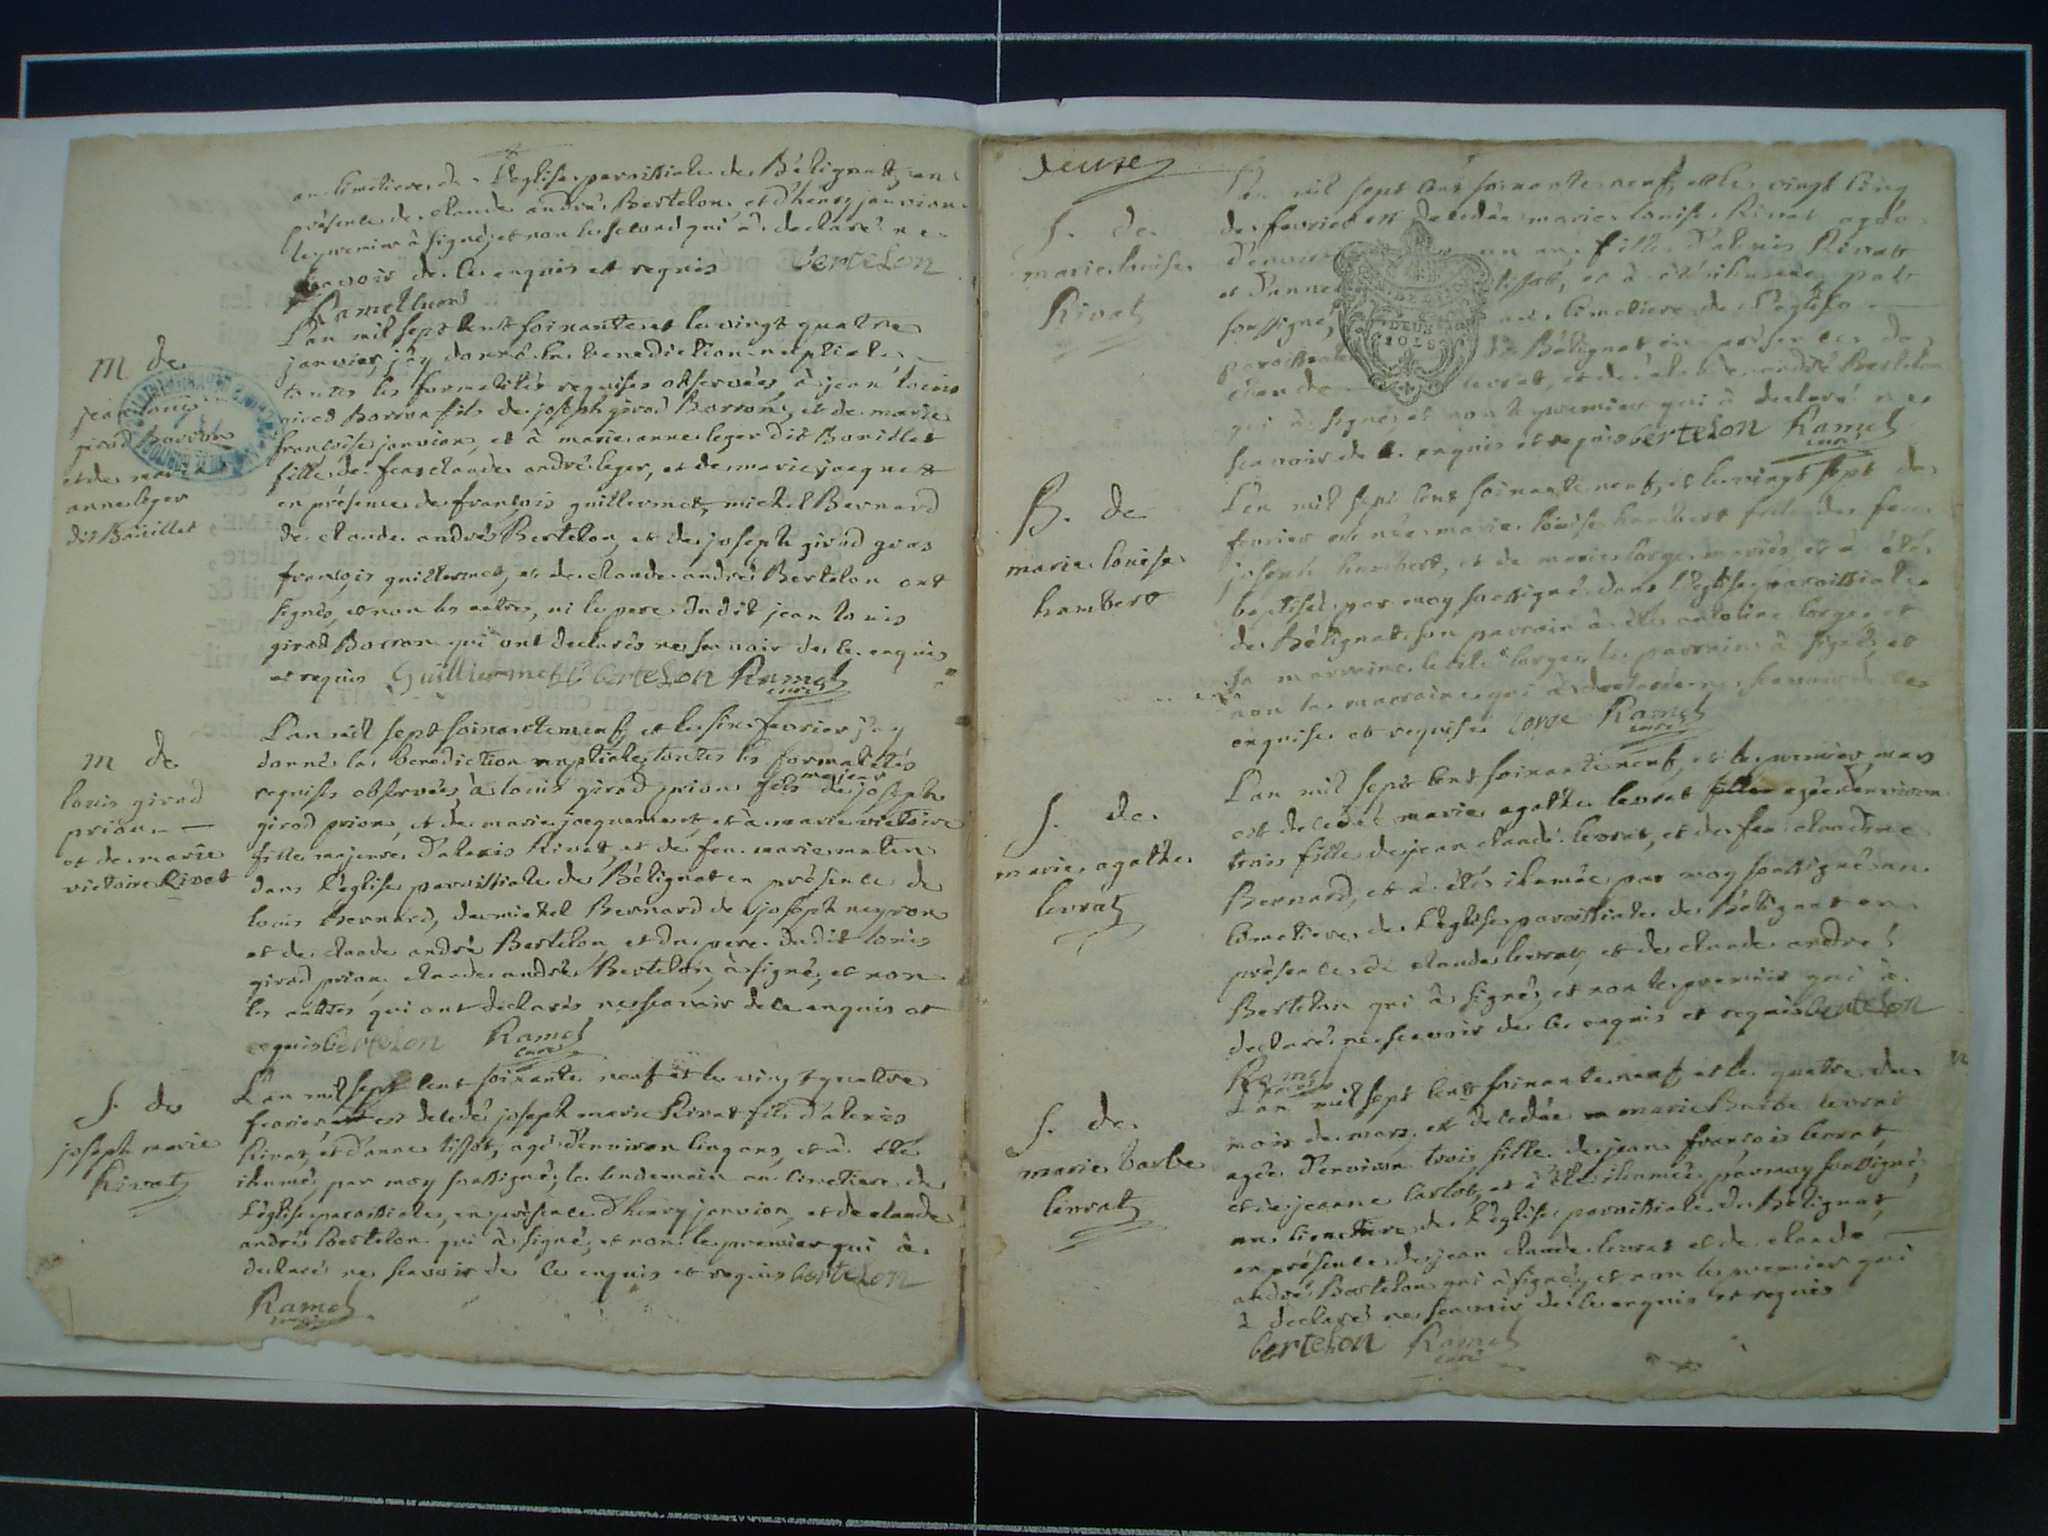 au cimetiere de l'eglise paroissiale de Bélignat, en
présence de claude andré Bertelon, et d'henry janvion
le premier à signé, et non le second qui à declaré ne
scavoir de ce enquis et requis bertelon
Ramel curé
m de
jean louis
girod Borron
et de marie
anne leger
dit Bouillet
L'an mil sept cent soixante et le vingt quatre
janvier, j'ay donné la benediction nuptiale
toutes les formalités requises observées, à jean louis
girod Borron fils de joseph girod Borron, et de marie
françoise janvion, et à marie anne leger dit Bouillet
fille de feu claude andré leger, et de marie jacquet
en présence de françois guillermet, michel Bernard
de claude andré Bertelon, et de joseph girod gros
françois guillermet, et de claude andré Bertelon ont
signés, et non les autres, ni le pere dudit jean louis
girod Borron qui ont declarés ne scavoir de ce enquis
et requis Guilliermet bertelon Ramel
curé
m de
louis girod
prion
et de marie
victoire Rivat
L'an mil sept soixante neuf, et le six fevrier j'ay
donné la benediction nuptiale, toutes les formalités
requises observées, à louis girod prion fils majeur de joseph
girod prion, et de marie jacquemet, et à marie victoire
fille majeure d'alexis Rivat, et de feu marie
dans l'eglise paroissiale de Bélignat en présence de
louis Bernard, de michel Bernard de joseph neyron
et de claude andré Bertelon, et du pere dudit louis
girod prion, claude andré Bertelon, à signé, et non
les autres qui ont declarés ne scavoir de ce enquis et
requis bertelon Ramel
curé
S. de
joseph marie
Rivat
L'an mil sept cent soixante neuf et le vingt quatre
fevrier est decedé joseph marie Rivat fils d'alexis
Rivat, et d'anne tissot, agé d'environ cinq ans, et à été
ihumé, par moy soussigné, le lendemain au cimetiere de
l'eglise paroissiale, en présence d'henry janvion, et de claude
andré bertelon qui à signé, et non le premier qui à
declaré ne scavoir de ce enquis et requis bertelon
Ramel
curé
deuxe
S. de
marie louise
Rivat
L'an mil sept cent soixante neuf, et le vingt cinq
de fevrier est decedée marie louise Rivat agée
d'environ un an fille d'alexis Rivat
et d'anne tissot, et à été ihumée, par
soussigné, cimetiere de l'eglise
paroissiale de Bélignat en présence de
claude levrat, et de claude andré Bertelon
qui à signé, et non le premier qui à declaré ne
scavoir de ce enquis et requis bertelon Ramel
curé
B. de
marie louise
humbert
L'an mil sept cent soixante neuf, et le vingt sept de
fevrier est née marie louise humbert fille de feu
joseph humbert, et de marie lorge mariés, et à été
baptisée par moy soussigné dans l'eglise paroissiale
de Bélignat, son parrain à été antoine lorge et
sa marraine lorge, le parrain à signé, et
non la marraine qui à declarée ne scavoir de ce
enquise et requise lorge Ramel
curé
S. de
marie agathe
levrat
L'an mil sept cent soixante neuf, et le premier mars
est decedée marie agathe levrat agée d'environ
trois fille de jean claude levrat, et de feu claudine
Bernard, et à été ihumée par moy soussigné au
cimetiere de l'eglise paroissiale de Bélignat en
présence de claude levrat, et de claude andré
Bertelon qui à signé, et non le premier qui à
declaré ne scavoir de ce enquis et requis bertelon
Ramel
curé
S. de
marie barbe
levrat
L'an mil sept cent soixante neuf, et le quatre du
mois de mars, est decedée marie Barbe levrat
agée d'environ trois fille de jean françois levrat,
et de jeanne carlot, et à été ihumée par moy soussigné,
au cimetiere de l'eglise paroissiale de Bélignat,
en présence de jean claude levrat et de claude
andré Bertelon qui à signé, et non le premier qui
à declaré ne scavoir de ce enquis et requis
bertelon Ramel
curé